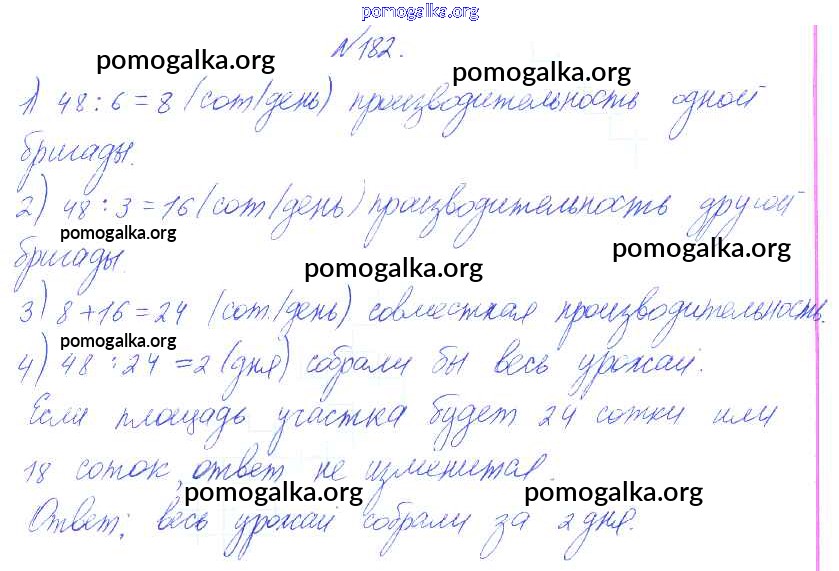 pomogalka.org
№182.
pomogalka.org pomogalka.org
1) 48 : 6 = 8 (сот/день) производительность одной
бригады.
2) 48 : 3 = 16 (сот/день) производительность другой
pomogalka.org pomogalka.org
бригады.
pomogalka.org
3) 8 + 16 = 24 (сот./день) совместная производительность.
pomogalka.org
4) 48 : 24 = 2 (дня) собрали бы весь урожай.
Если площадь участка будет 24 сотки или
18 соток, ответ не изменится.
pomogalka.org pomogalka.org
Ответ: весь урожай собрали за 2 дня.